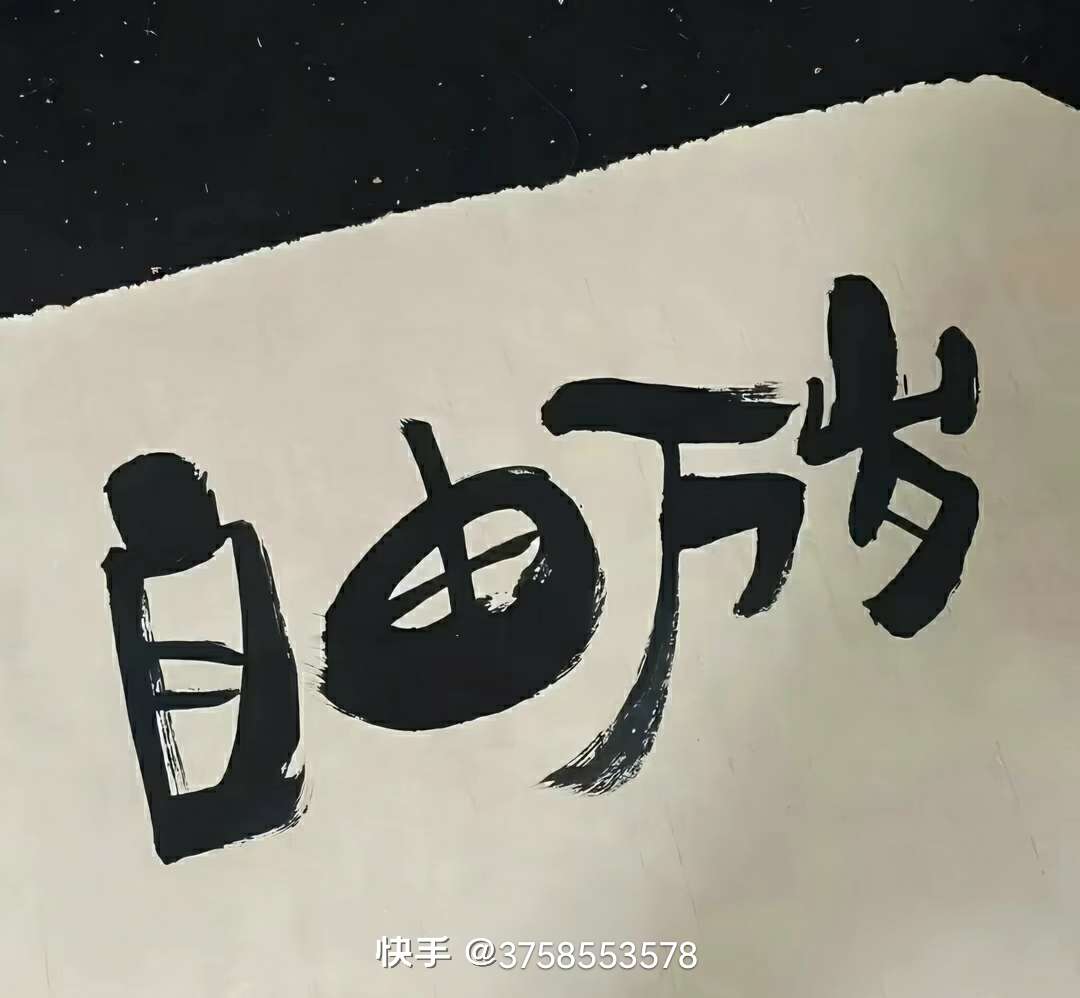 自由万岁
快手 @3758553578